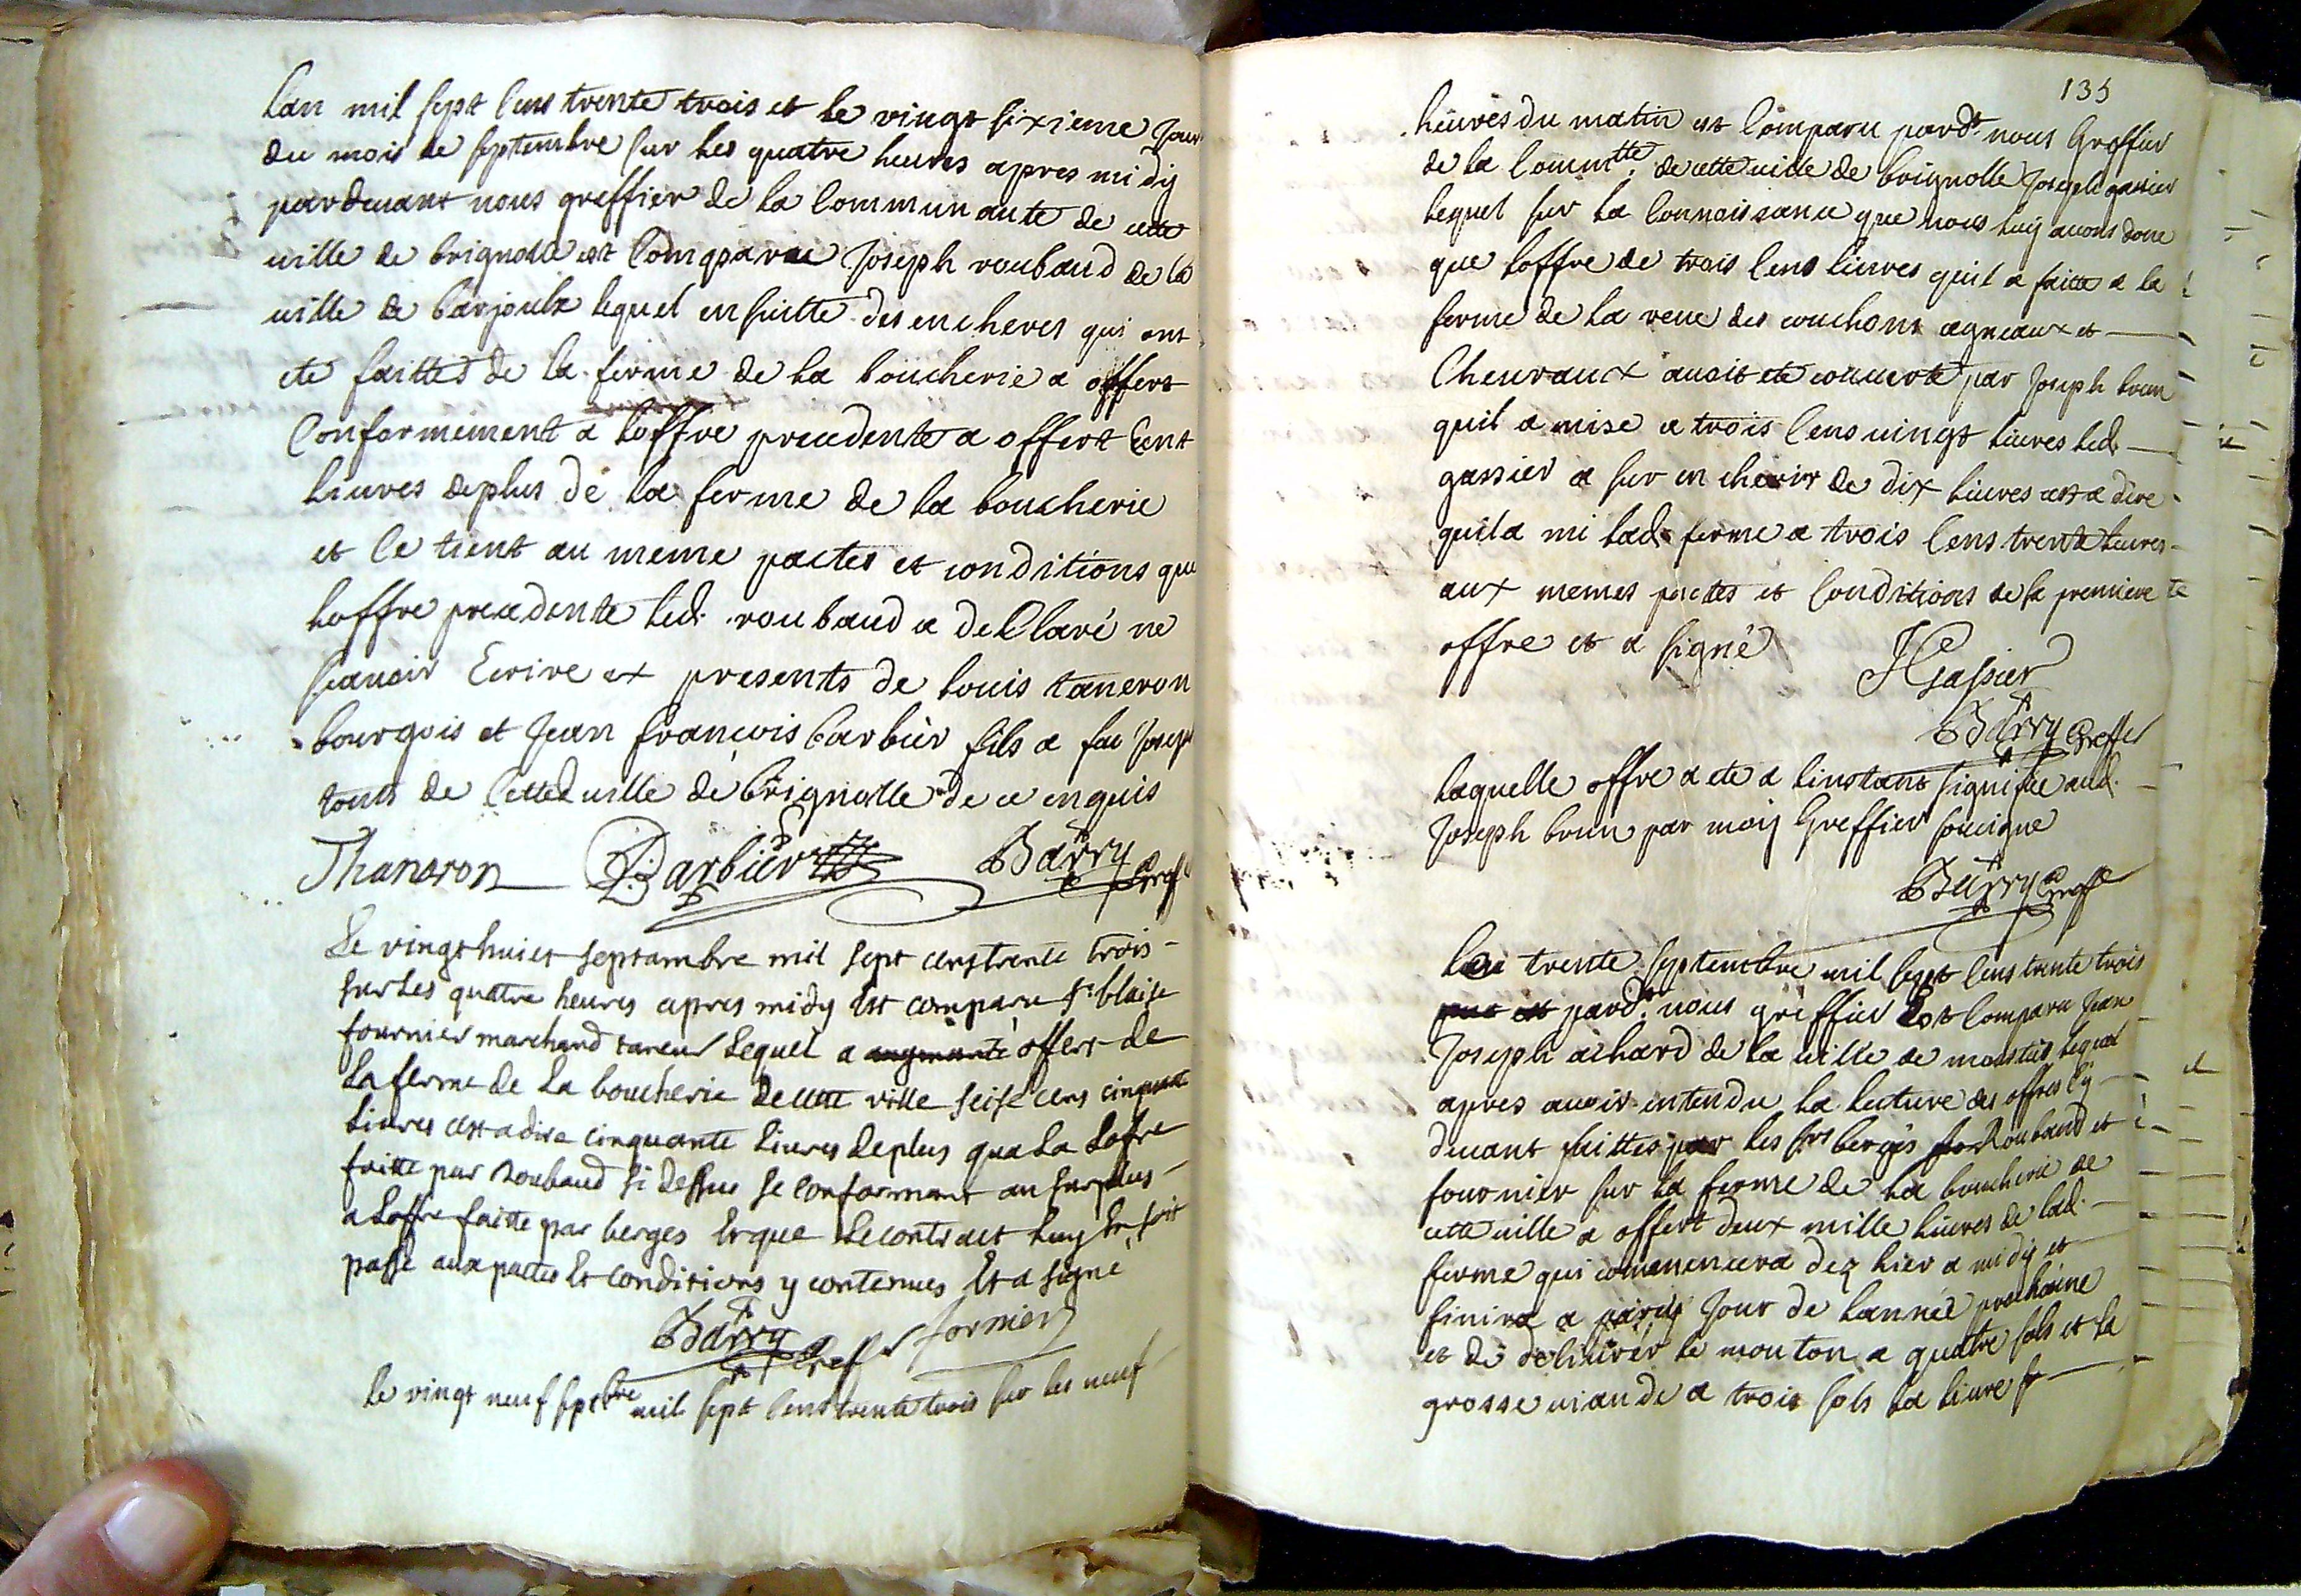 Lan mil sept cens trente trois et le vingt sixieme jour
du mois de septembre sur les quatre heures apres midy
pardevant nous greffier de la communauté de cette
ville de brignolle est comparu Joseph roubaud de la
ville de barjoulx lequel ensuitte des encheres qui ont
ete faittes de la ferme de la boucherie a offert
conformement a loffre precedente a offert cent
livres deplus de la ferme de la boucherie
et ce tient au meme pactes et conditions que
loffre precedente led. roubaud a declaré ne
scavoir Ecrire et presents de louis taneron
bourgois et Jean francois barbier fils a feu Joseph
touts de cette ville de brignolle de ce enquis
Thanaron Barbier Barry Greff
Le vingt huict septambre mil sept cens trente trois
sur les quatre heures apres midy Est comparu Sr blaise
fournier marchand taneur Lequel a augmanté offert de
La ferme de La boucherie de cette ville seise cens cinquante
Livres cest a dire cinquante Livres deplus que La Lofre
faitte par roubaud si dessus se conformant au surplus
a Loffre faitte par berges Et que Le contract Luy En soit
passé aux pactes Et conditions y contenues Et a signé
Barry Greff fornier
le vingt neuf septbre mil sept cens trente trois sur les neuf
135
heures du matin est comparu pardt nous Greffier
de la commtte de cette ville de brignolle Joseph gassier
lequel sur la connoissance que nous luy avons done
que loffre de trois cens livres quil a faitte a la
ferme de la reve des couchons agneaux et
chevraux avoit ete couverte par Joseph brun
quil a mise a trois cens vingt livres led.
gassier a sur encherir de dix livres cest a dire
quil a mi lad. ferme a trois cens trente livres
aux memes pactes et conditions de la premiere
offre et a signé JGassier
Barry Greffer
laquelle offre a ete a linstant signifiée aud.
Joseph brun par moy Greffier soucigne
Barry Greff
Lan trente septembre mil sept cens trente trois
pardt nous greffier Est comparu Jean
Joseph achard de la ville de moustiés lequel
apres avoir entendu la lecture des offres cy
devant faittes par les srs berges Roubaud et
fournier sur la ferme de la boucherie de
cette ville a offert deux mille livres de lad.
ferme qui commencera dez hier a midy et
finira a pareil Jour de lannée prochaine
et de délivrér le mouton a quatre sols et la
grosse viande a trois sols la livre